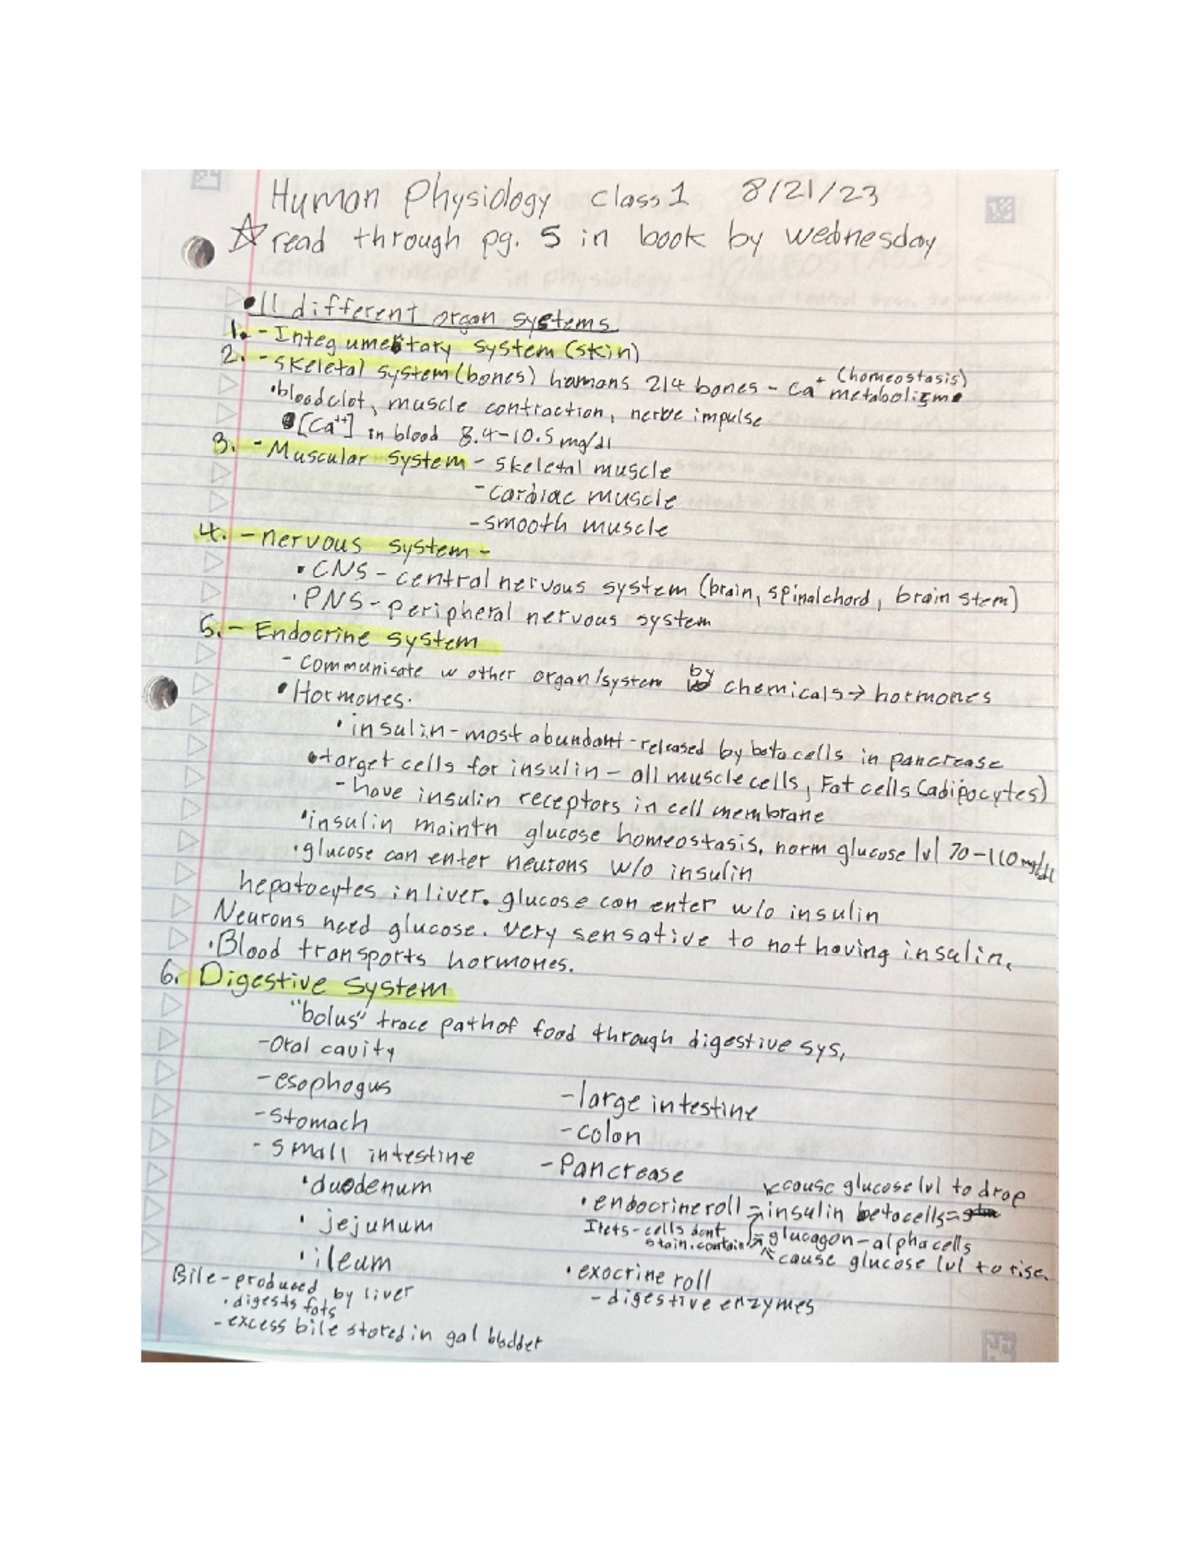 Human Physiology class 1 8/21/23
☆ read through pg. 5 in book by wednesday
• 11 different organ systems
1. - Integumentary system (skin)
2. - skeletal system (bones) humans 214 bones - Ca⁺ (homeostasis) metabolism
• bloodclot, muscle contraction, nerve impulse
• [Ca⁺⁺] in blood 8.4-10.5 mg/dl
3. - Muscular system - skeletal muscle
- cardiac muscle
- smooth muscle
4. - nervous system -
• CNS - central nervous system (brain, spinalchord, brain stem)
• PNS - peripheral nervous system
5. - Endocrine system
- communicate w other organ/system by chemicals → hormones
• Hormones.
• insulin - most abundant - released by beta cells in pancrease
• target cells for insulin - all muscle cells, Fat cells (adipocytes)
- have insulin receptors in cell membrane
• insulin maintn glucose homeostasis, norm glucose lvl 70-110 mg/dl
• glucose can enter neurons w/o insulin
hepatocytes in liver. glucose can enter w/o insulin
Neurons need glucose. very sensative to not having insulin.
• Blood transports hormones.
6. Digestive System
"bolus" trace path of food through digestive sys.
- Oral cavity
- esophogus
- stomach
- small intestine
• duodenum
• jejunum
• ileum
Bile - produced by liver
• digests fats
- excess bile stored in gal bladder
- large intestine
- colon
- Pancrease
cause glucose lvl to drop
• endocrine roll = insulin betacells =
cells dont stain. contain = glucagon - alpha cells
cause glucose lvl to rise.
• exocrine roll
- digestive enzymes